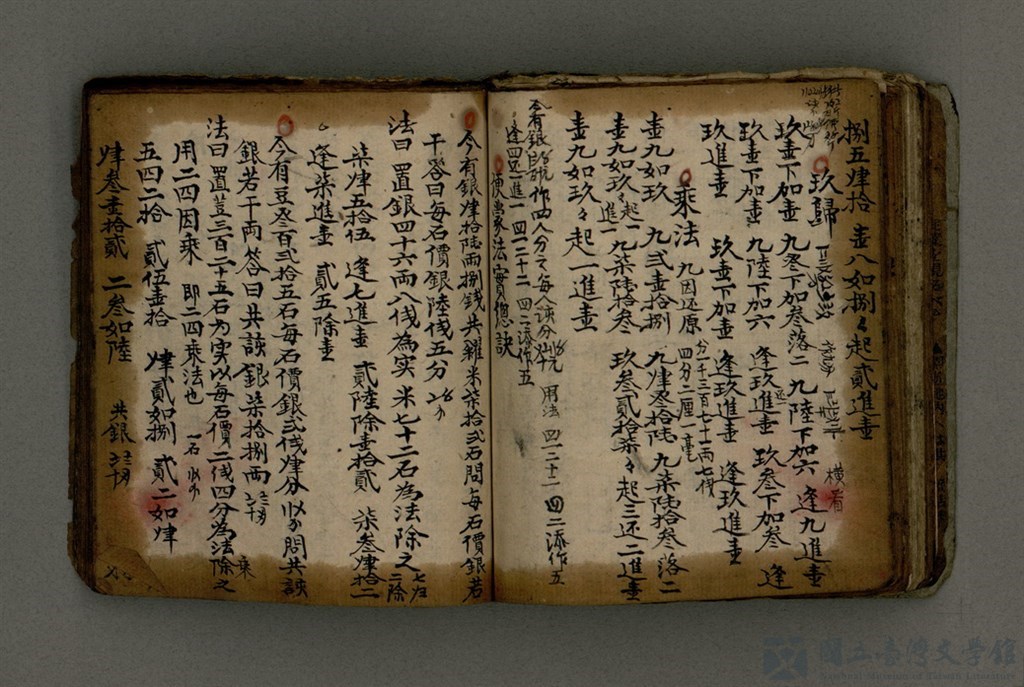 捌五肆拾 壹八如捌々起貳進壹
玖歸
橫看
玖壹下加壹 九叁下加叁落二 九陸下加六 逢九進壹
玖壹下加壹 九陸下加六 逢玖進壹 玖叁下加叁 逢
玖進壹 玖壹下加壹 逢玖進壹 逢玖進壹
乘法 九因还原
分一千三百七十一両七伐
四分二厘一毫
壹九如玖 九弍壹拾捌 九肆叁拾陸 九柒陸拾叁落二
壹九如玖々起一進 一九柒陸拾叁 玖叁貳拾柒々起三还二進壹
壹九如玖々起一進壹
今有銀 作四人分之每人 用法 四一二十二 四二添作五
逢四还進一 四一二十二 四二添作五
便蒙法實總訣
今有銀肆拾陸両捌錢共糴米柒拾弍石問每石價銀若
干答曰每石價銀陸伐五分
法曰置銀四十六両八伐為实米七十二石為法除之 七归二除
柒肆五拾伍 逢七進壹 貳陸除壹拾貳 柒叁肆拾二
逢柒進壹 貳五除壹
今有豆叁百弍拾五石每石價銀弍伐肆分 問共該
銀若干両答曰共該銀柒拾捌両
法曰置荳三百二十五石为实以每石價二伐四分為法除之
乘
用二四因乘 即二四乘法也 一石
五四二拾 貳伍壹拾 肆貳如捌 貳二如肆
肆叁壹拾貳 二叁如陸 共銀
國立臺灣文學館
National Museum of Taiwan Literature